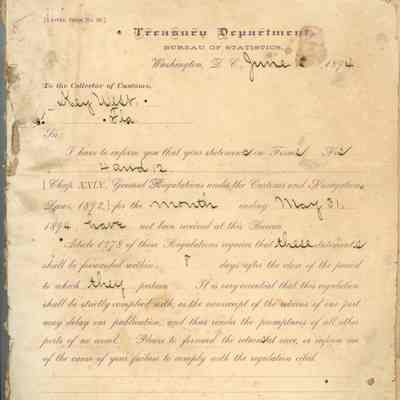 [Letter Form No. 20.]
Treasury Department,
BUREAU OF STATISTICS,
Washington, D. C., June 1894
To the Collector of Customs,
Key West,
Fla
Sir:
I have to inform you that your statements on Forms Nos
4 and 12
[Chap. XXIV, General Regulations under the Customs and Navigation
Laws, 1892,] for the month ending May 31,
1894, have not been received at this Bureau.
Article 1278 of these Regulations requires that these statements
shall be forwarded within 8 days after the close of the period
to which they pertain. It is very essential that this regulation
shall be strictly complied with, as the nonreceipt of the returns of one port
may delay our publication, and thus render the promptness of all other
ports of no avail. Please to forward the returns at once, or inform me
of the cause of your failure to comply with the regulation cited.